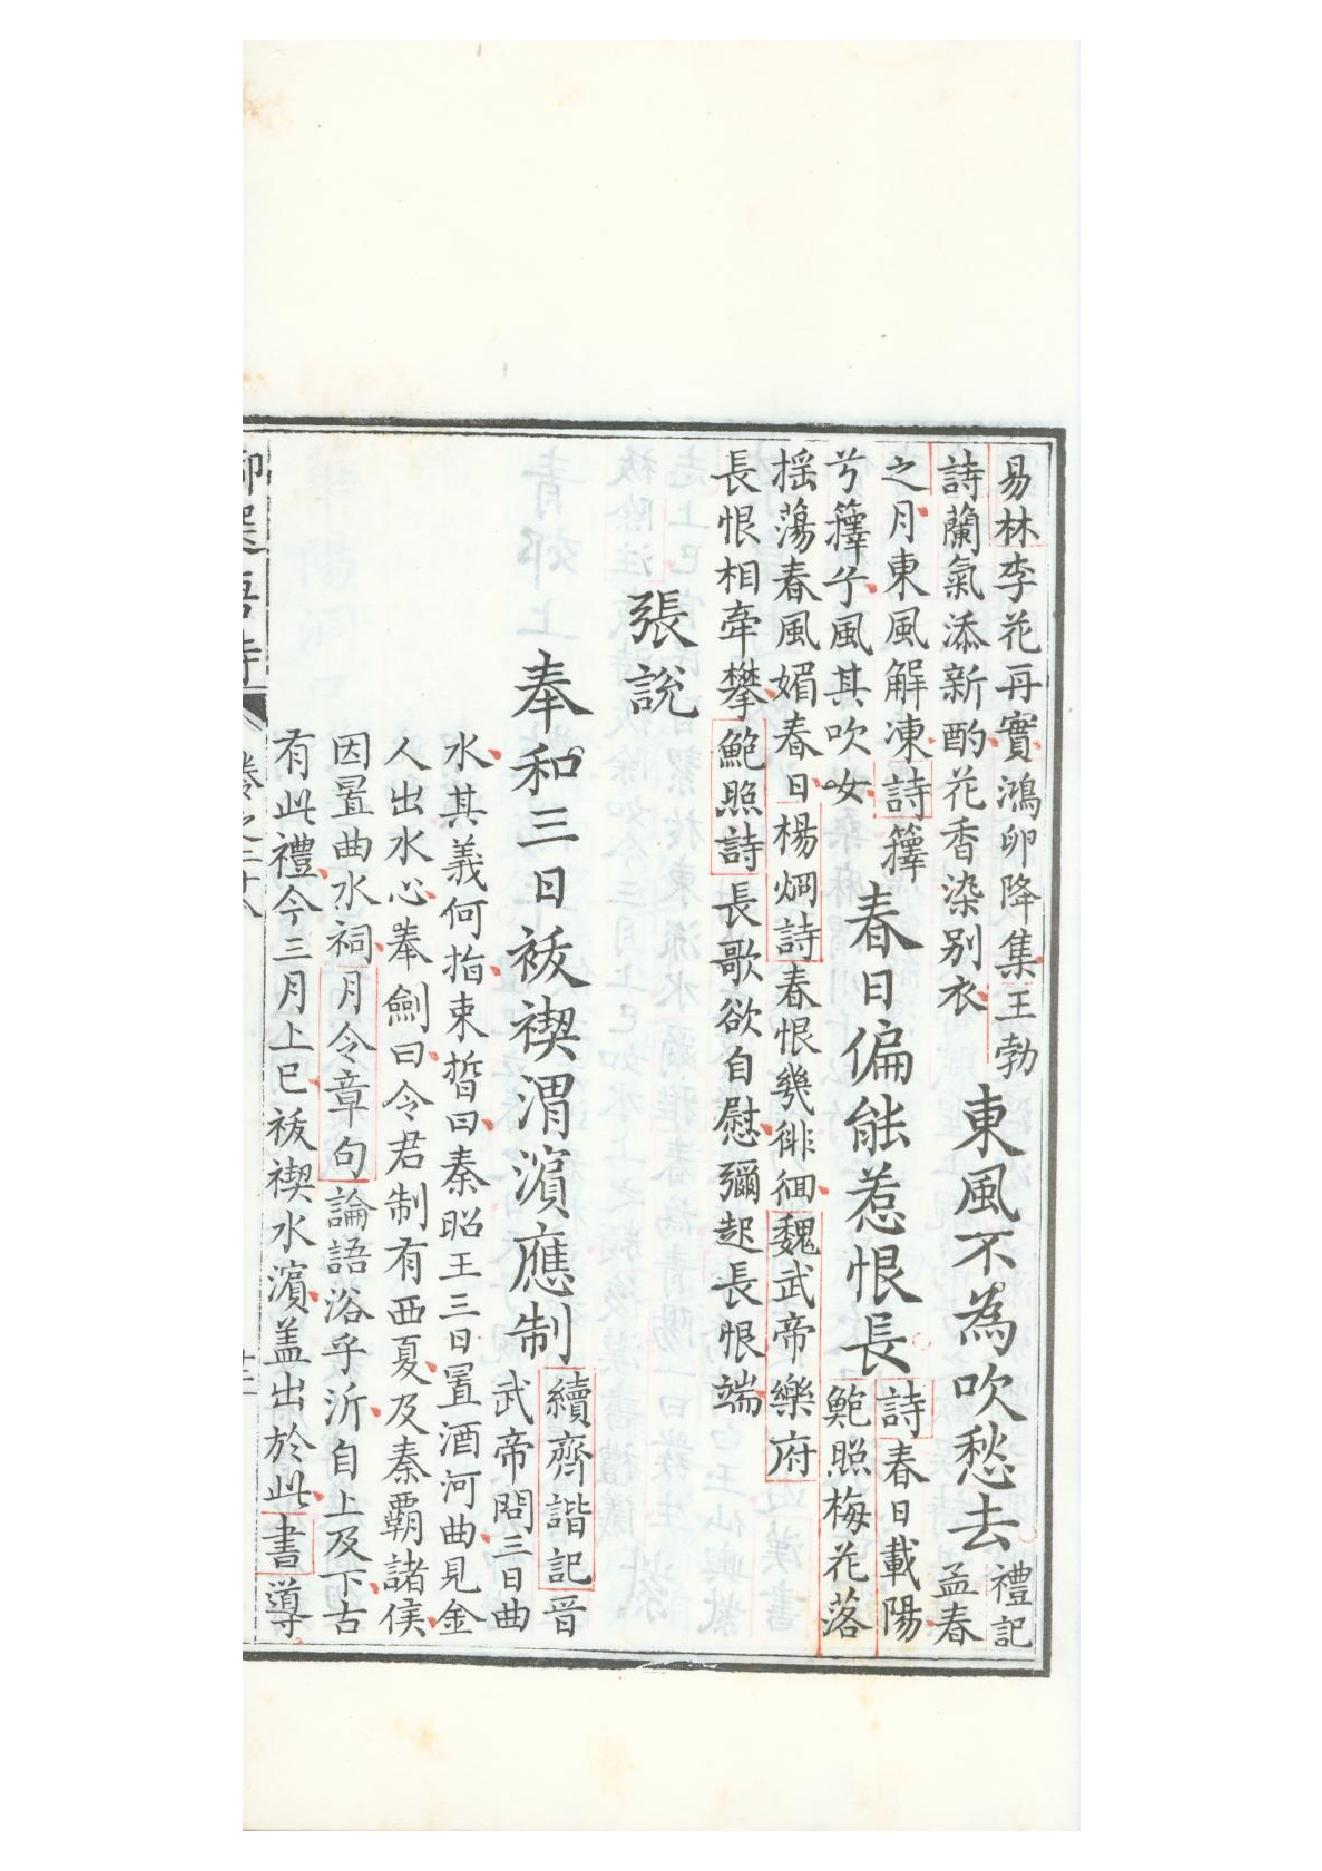 易林李花再實鴻卯降集王勃
詩蘭氣添新酌花香染別衣
東風不為吹愁去
禮記
孟春
之月東風解凍詩蘀
兮蘀兮風其吹女
春日偏能惹恨長
詩春日載陽
鮑照梅花落
揺蕩春風媚春日楊烱詩春恨幾徘徊魏武帝樂府
長恨相牽攀鮑照詩長歌欲自慰彌起長恨端
張說
奉和三日祓禊渭濵應制
續齊諧記晉
武帝問三日曲
水其義何指束晳曰秦昭王三日置酒河曲見金
人出水心奉劍曰令君制有西夏及秦覇諸侯
因置曲水祠月令章句論語浴乎沂自上及下古
有此禮今三月上巳祓禊水濵盖出於此書導
御選唐詩
卷之二十八